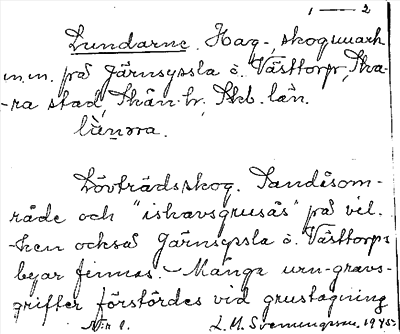 1 — 2
Lundarne. Hag-, skogsmark
m.m. på Järnsyssla ö. Västtorp, Ska-
-ra stad, Skån. hr, Skb. län.
lùnᴅra.
Lövträdsskog. Sandåsom-
råde och "ishavsgrusås" på vil-
-ken också Järnsyssla ö. Västtorps
byar finnas. - Många urn-gravs-
griffer förstördes vid grustagning
N:r 1. L. M. Svenungsson. 1945.